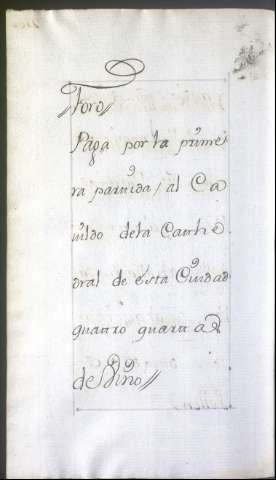 Foro//
Paga por la prime
ra partida, al Ca
uildo dela Cathe
dral de esta Ciudad
quatro quartas
de Vino//